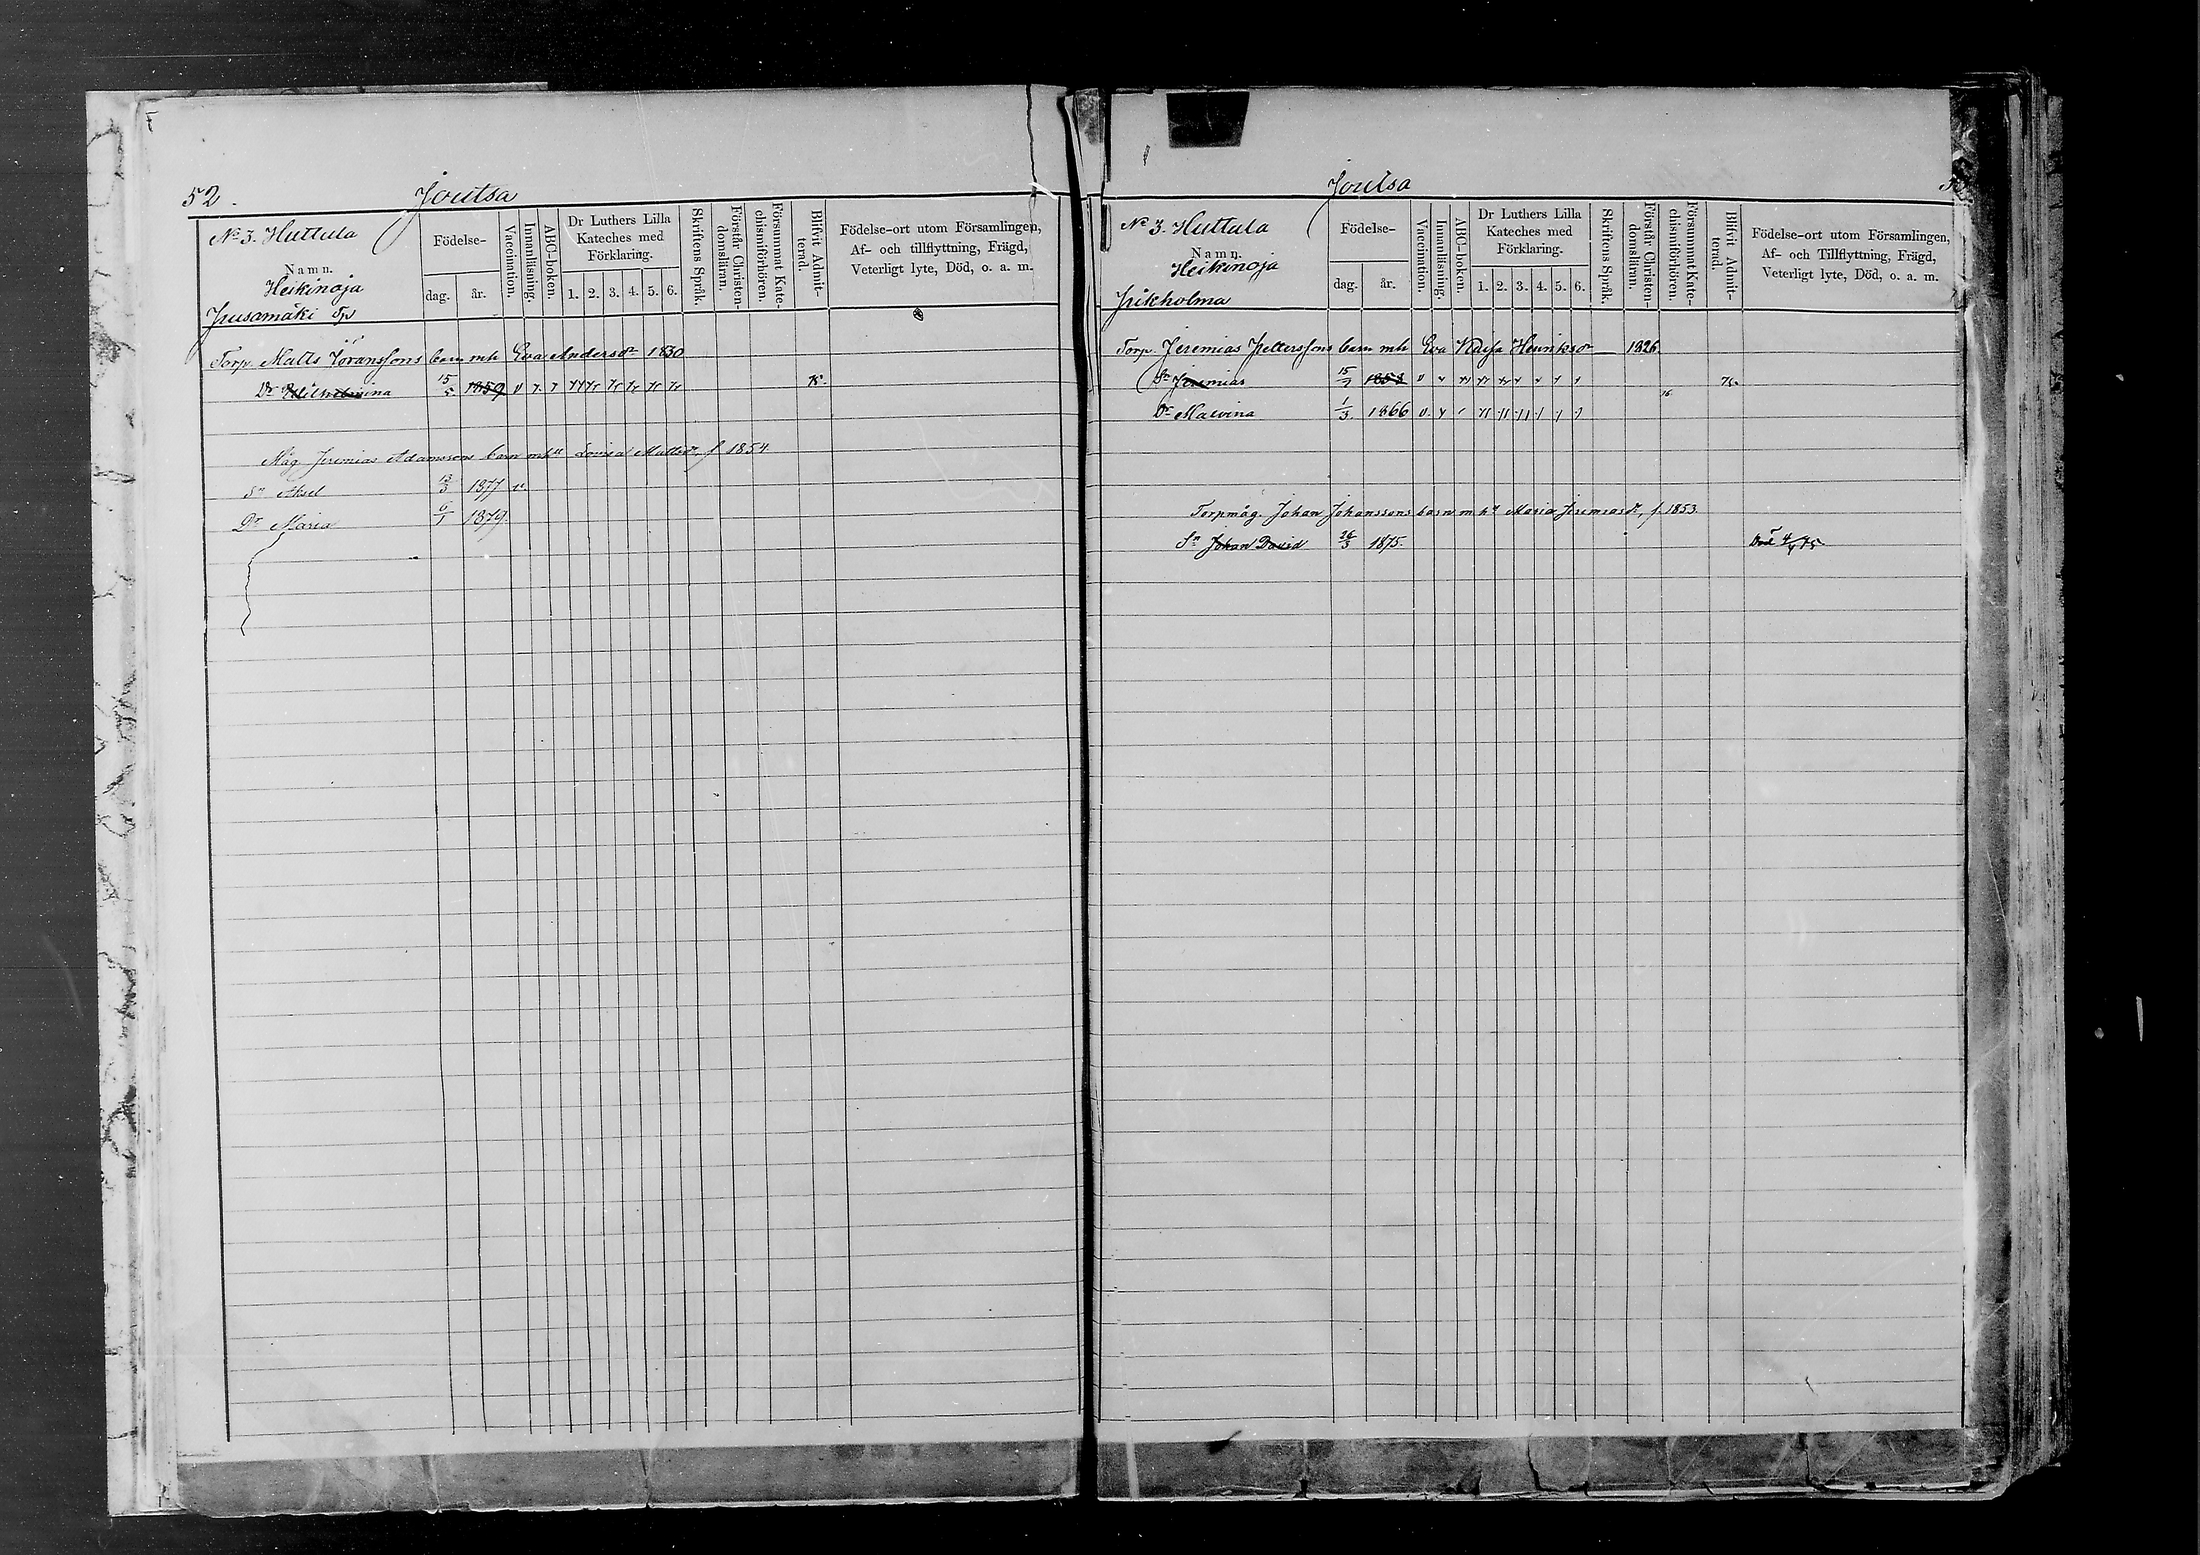 52.
Joutsa
No 3. Huttula
Namn.
Heikinoja
Pusamäki Tp
Födelse-
dag.
år.
Vaccination.
Innanläsning.
ABC-boken.
Dr Luthers Lilla
Kateches med
Förklaring.
1. 2. 3. 4. 5. 6.
Skriftens Språk.
Förstår Christen-
domsläran.
Försummat Kate-
chismiförhören.
Blifvit Admit-
terad.
Födelse-ort utom Församlingen,
Af- och tillflyttning, Frägd,
Veterligt lyte, Död, o. a. m.
Torp. Matts Göranssons barn mh Eva Andersdr 1830
Dr Wilhelmina 15/5 1859
Måg. Jeremias Adamssons barn mhu Lovisa Mattsdr, f 1854.
Sn Aksel 13/3 1877 v.
Dr Maria 6/1 1879.
Joutsa
No 3. Huttula
Namn.
Heikinoja
Pikholma
Födelse-
dag.
år.
Vaccination.
Innanläsning.
ABC-boken.
Dr Luthers Lilla
Kateches med
Förklaring.
1. 2. 3. 4. 5. 6.
Skriftens Språk.
Förstår Christen-
domsläran.
Försummat Kate-
chismiförhören.
Blifvit Admit-
terad.
Födelse-ort utom Församlingen,
Af- och Tillflyttning, Frägd,
Veterligt lyte, Död, o. a. m.
Torp. Jeremias Pettersons barn mh Eva Henriksdr 1826.
Sn Jeremias 15/7 1853
Dr Malvina 1/3 1866
Torpmåg. Johan Johanssons barn m hu Maria Jeremiasdr, f. 1853.
Sn Johan David 26/3 1875. Död 4/4 75